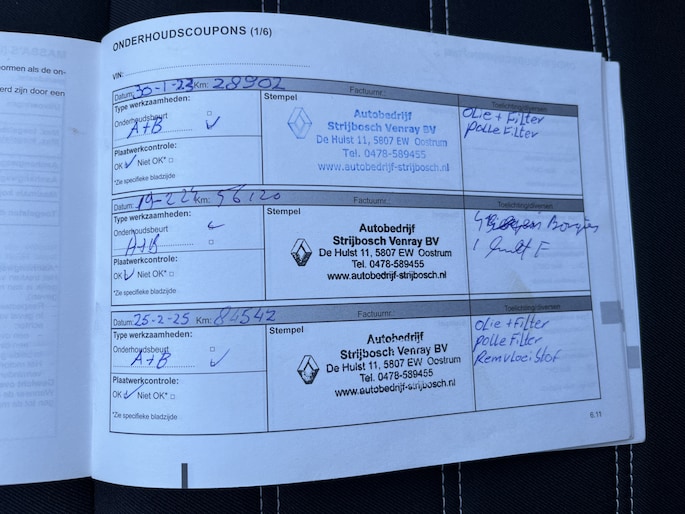 ormen als de on-
erd zijn door een
ONDERHOUDSCOUPONS (1/6)
VIN:
Datum: 30-1-23 Km: 28902 Factuurnr.: Toelichting/diversen
Type werkzaamheden:
Onderhoudsbeurt
A+B
Plaatwerkcontrole:
OK Niet OK*
*Zie specifieke bladzijde
Stempel
Autobedrijf
Strijbosch Venray BV
De Hulst 11, 5807 EW Oostrum
Tel. 0478-589455
www.autobedrijf-strijbosch.nl
olie + Filter
polle Filter
Datum: 19-2-24 Km: 56120 Factuurnr.: Toelichting/diversen
Type werkzaamheden:
Onderhoudsbeurt
A+B
Plaatwerkcontrole:
OK Niet OK*
*Zie specifieke bladzijde
Stempel
Autobedrijf
Strijbosch Venray BV
De Hulst 11, 5807 EW Oostrum
Tel. 0478-589455
www.autobedrijf-strijbosch.nl
Datum: 25-2-25 Km: 84542 Factuurnr.: Toelichting/diversen
Type werkzaamheden:
Onderhoudsbeurt
A+B
Plaatwerkcontrole:
OK Niet OK*
*Zie specifieke bladzijde
Stempel
Autobedrijf
Strijbosch Venray BV
De Hulst 11, 5807 EW Oostrum
Tel. 0478-589455
www.autobedrijf-strijbosch.nl
olie + Filter
polle Filter
Remvloeistof
6.11